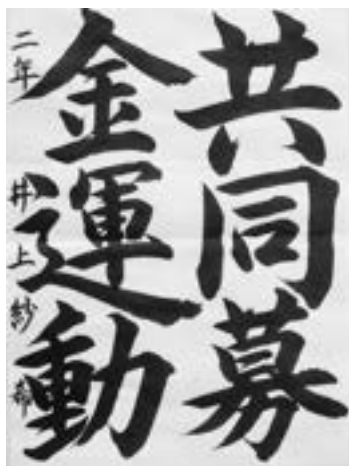 共同募
金運動
二年 井上紗